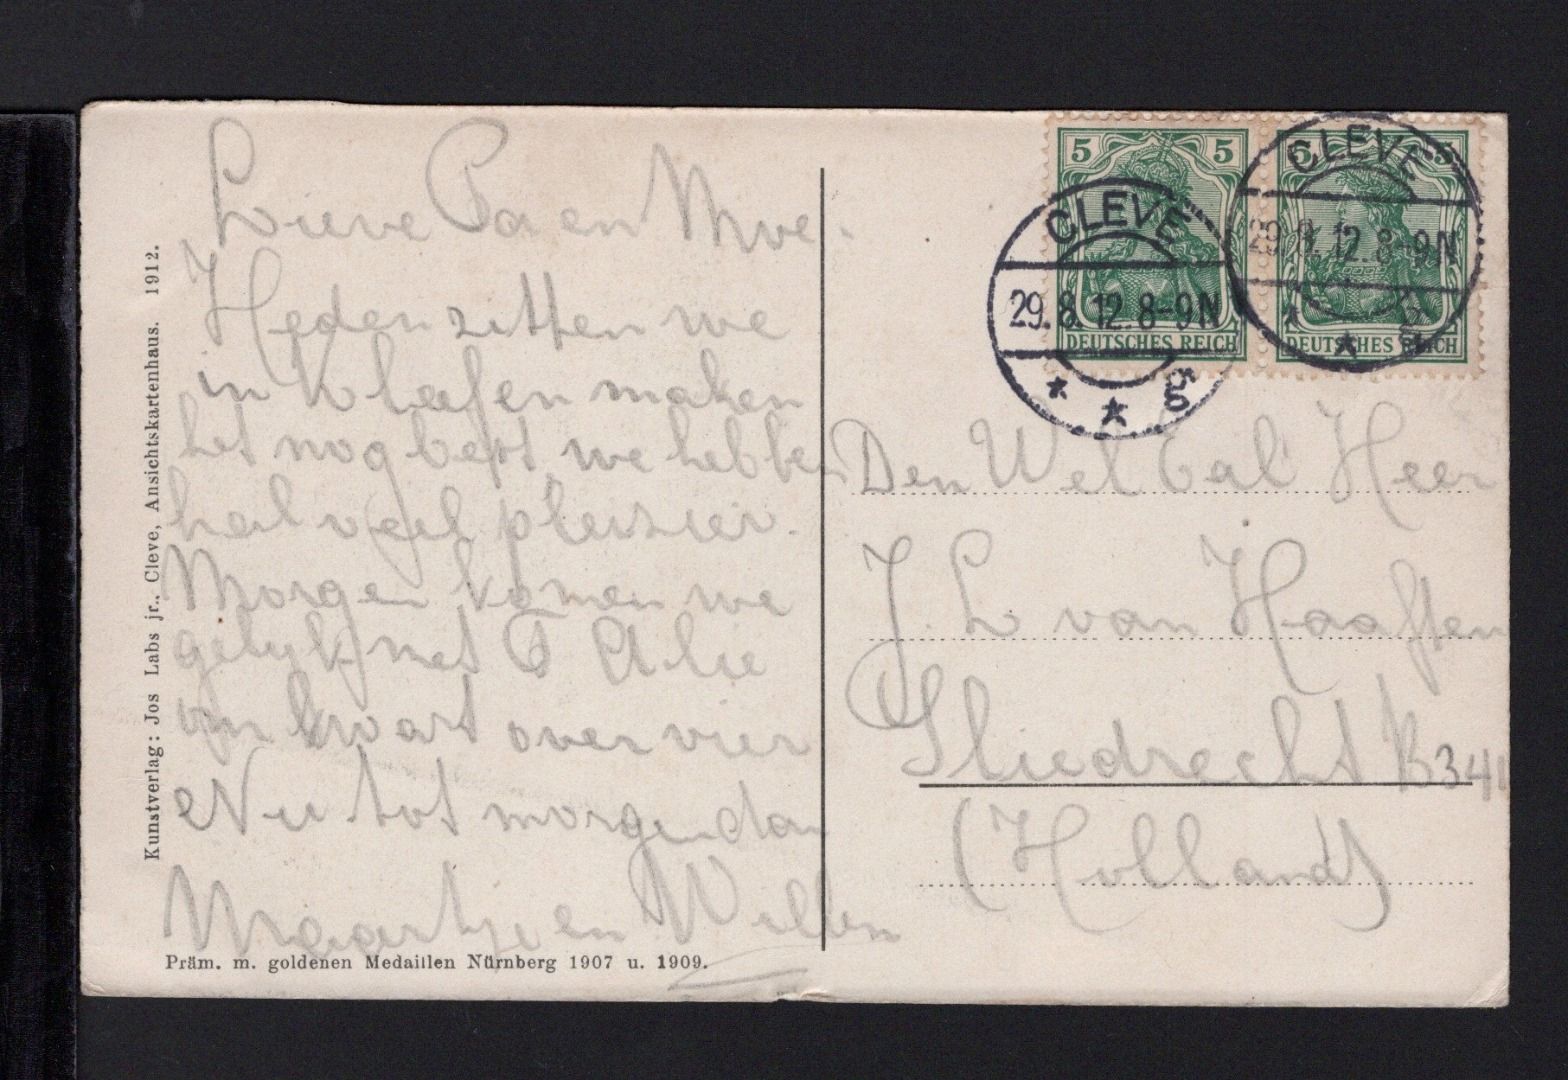 Lieve Pa en Moe.
Heden zitten we
in Klafen maken
het nog best, we hebben
heel veel pleisier.
Morgen komen we
gelijk met T Alie
om kwart over vier
Nu tot morgen dan
Maartje en Willem
Kunstverlag: Jos Labs jr., Cleve, Ansichtskartenhaus. 1912.
Präm. m. goldenen Medaillen Nürnberg 1907 u. 1909.
5 5
DEUTSCHES REICH
DEUTSCHES REICH
CLEVE
29.8.12.8-9N
* * g
CLEVE
29.8.12.8-9N
Den Wel Eal Heer
J. L van Haaften
Sliedrecht B341
(Holland)